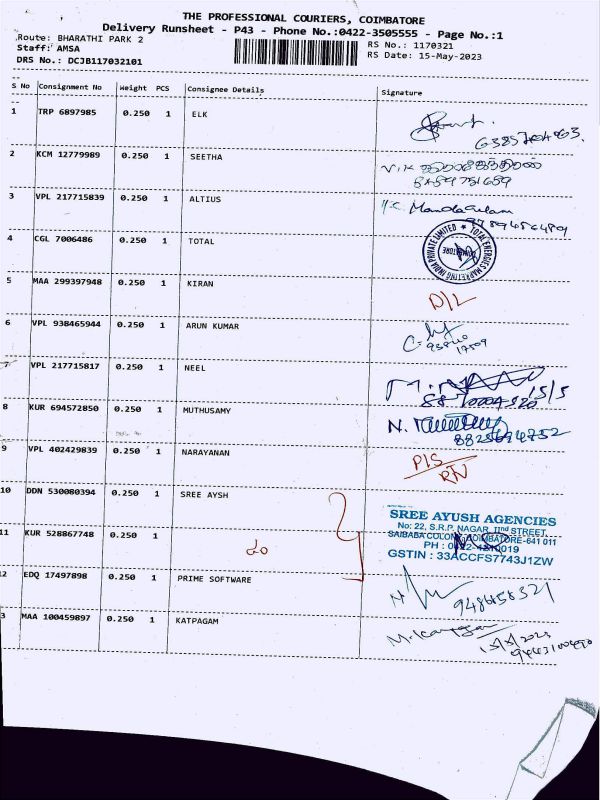 THE PROFESSIONAL COURIERS, COIMBATORE
Delivery Runsheet - P43 - Phone No.:0422-3505555 - Page No.:1
Route: BHARATHI PARK 2
RS No.: 1170321
Staff: AMSA
RS Date: 15-May-2023
DRS No.: DCJB117032101
S No Consignment No Weight PCS Consignee Details Signature
1 TRP 6897985 0.250 1 ELK
2 KCM 12779989 0.250 1 SEETHA
3 VPL 217715839 0.250 1 ALTIUS
4 CGL 7006486 0.250 1 TOTAL
TOTAL ENERGIES MARKETING INDIA PRIVATE LIMITED
COIMBATORE
5 MAA 299397948 0.250 1 KIRAN
D/L
6 VPL 938465944 0.250 1 ARUN KUMAR
7 VPL 217715817 0.250 1 NEEL
15/5
8 KUR 694572850 0.250 1 MUTHUSAMY
N.
8825694752
9 VPL 402429839 0.250 1 NARAYANAN
10 DDN 530080394 0.250 1 SREE AYSH
SREE AYUSH AGENCIES
No: 22, S.R.P. NAGAR, IInd STREET,
SAIBABA COLONY, COIMBATORE-641 011
PH : 0422-4210019
GSTIN : 33ACCFS7743J1ZW
11 KUR 528867748 0.250 1
12 EDQ 17497898 0.250 1 PRIME SOFTWARE
3 MAA 100459897 0.250 1 KATPAGAM
15/5/2023